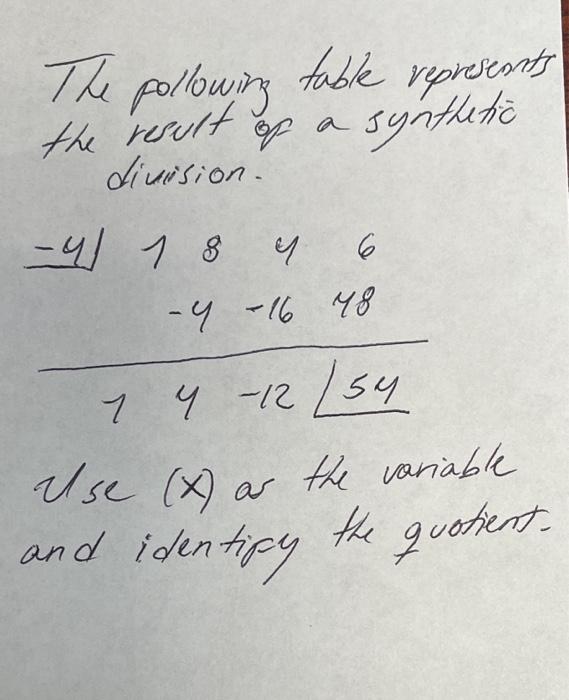 The following table represents
the result of a synthetic
division.
-4| 1 8 4 6
-4 -16 48
1 4 -12 |54
Use (x) as the variable
and identify the quotient.